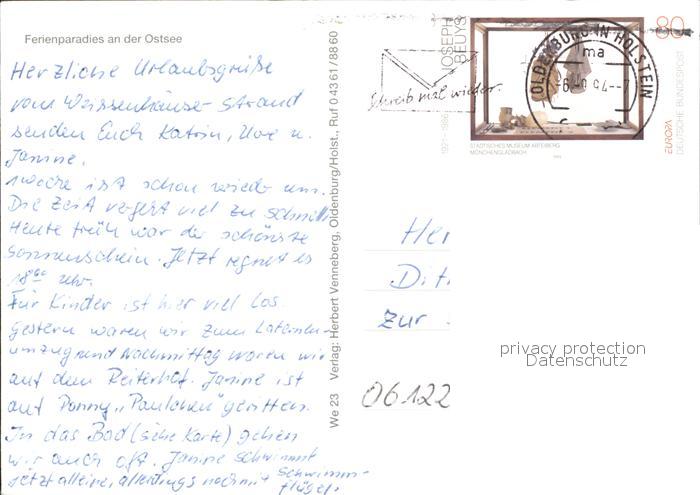 Ferienparadies an der Ostsee
Herzliche Urlaubsgrüße
vom Weissenhäuser Strand
senden Euch Katrin, Uwe u.
Janine.
1 Woche ist schon wieder um.
Die Zeit vergeht viel zu schnell
Heute früh war der schönste
Sonnenschein. Jetzt regnet es
18⁰⁰ Uhr.
Für Kinder ist hier viel Los.
Gestern waren wir zum Laternen-
umzug und Nachmittag waren wir
auf dem Reiterhof. Janine ist
auf Ponny "Paulchen" geritten.
In das Bad (siehe Karte) gehen
wir auch oft. Janine schwimmt
jetzt alleine, allerdings noch mit Schwimm-
flügel.
We 23 Verlag: Herbert Venneberg, Oldenburg/Holst., Ruf 0 43 61 / 88 60
Schreib mal wieder.
JOSEPH
BEUYS
1921–1986
80
OLDENBURG IN HOLSTEIN
ma
STÄDTISCHES MUSEUM ABTEIBERG
MÖNCHENGLADBACH
EUROPA
DEUTSCHE BUNDESPOST
Her
Dit
Zur
06122
privacy protection
Datenschutz